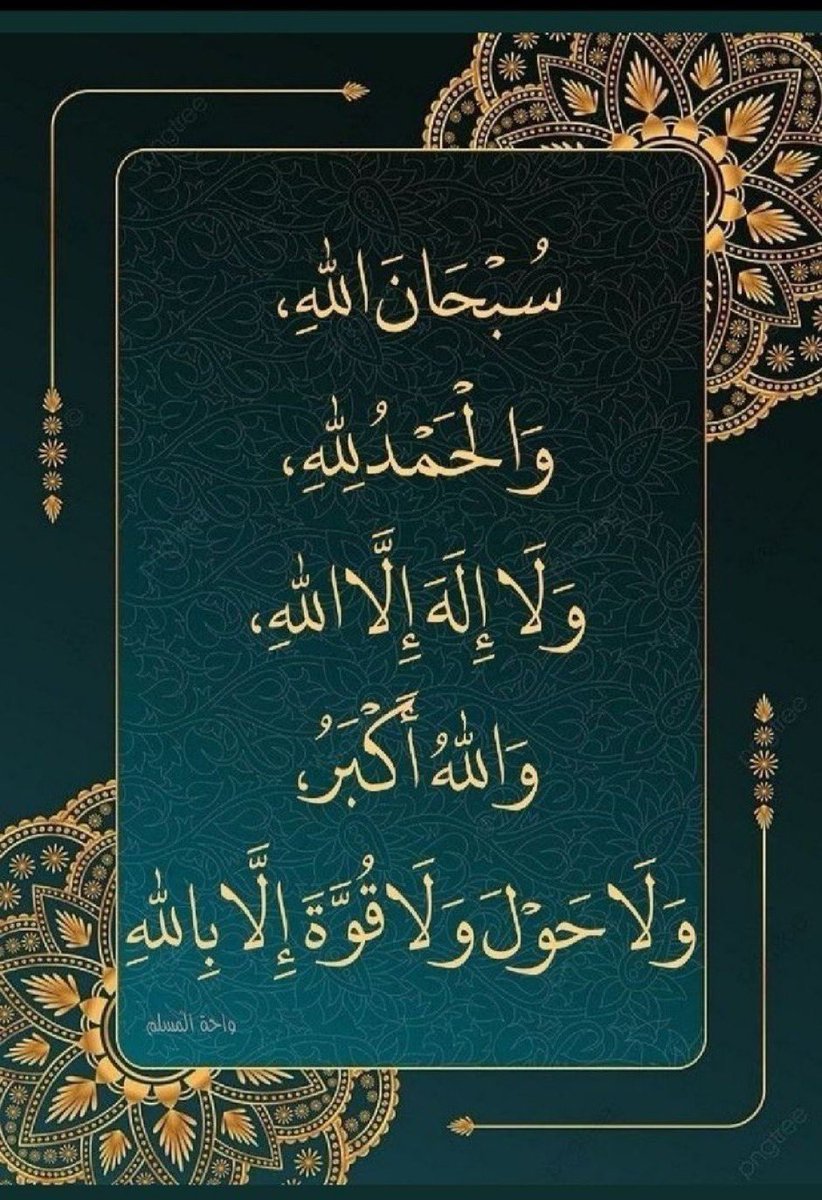 سُبْحَانَ اللهِ،
وَالْحَمْدُ لِلهِ،
وَلَا إِلَهَ إِلَّا اللهِ،
وَاللهُ أَكْبَرُ،
وَلَا حَوْلَ وَلَا قُوَّةَ إِلَّا بِاللهِ
واحة المسلم
pngtree